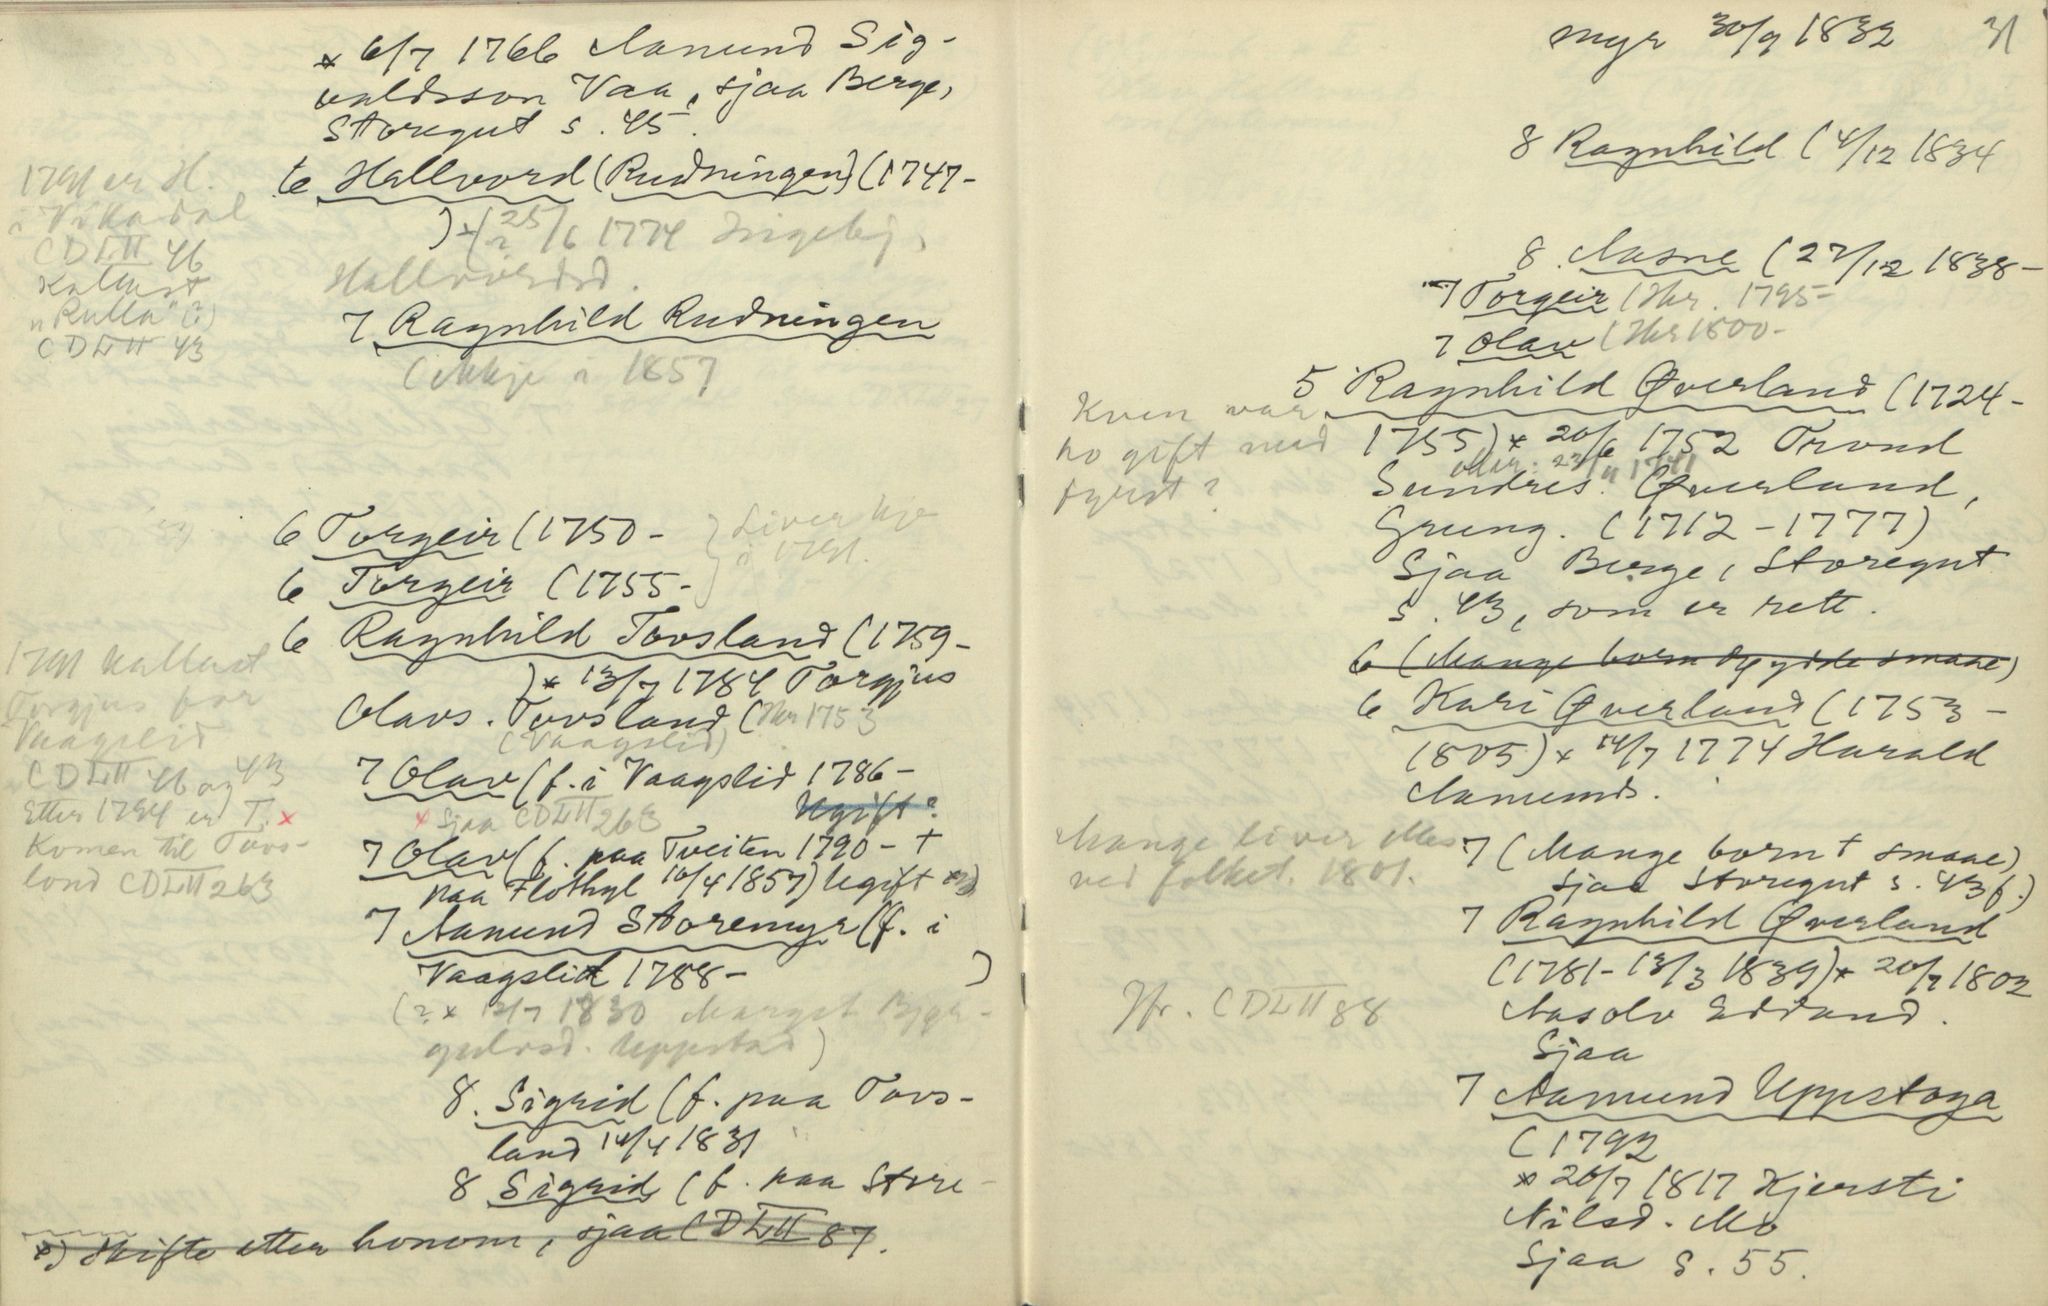 * 6/7 1766 Aamund Sig-
valdsson Vaa, sjaa Berge,
Storegut s. 45.
6 Hallvord (Rudningen) (1747-
) * (? 25/6 1774 Ingebj.
Hallvordsd.
1791 er H.
i Vikadal
CDLII 46
Kallast
"Rulla" (?)
CDLII 43
7 Ragnhild Rudningen
(Ekkje i 1857
6 Torgeir (1750-
6 Torgeir (1755-
} Liver kje
i 1791.
6 Ragnhild Tovsland (1759-
) * 13/7 1784 Torgjus
Olavs. Tovsland (Hr 1753
(Vaagslid)
1791 kallast
Torgjus for
Vaagslid
CDLII 46 og 43
Etter 1794 er T. x
Komen til Tovs-
land CDLII 263
7 Olav (f. i Vaagslid 1786-
Ugift?
x Sjaa CDLII 263
7 Olav (f. paa Tveiten 1790- +
paa Flothyl 10/4 1857) Ugift *)
7 Aamund Storemyr (f. i
Vaagslid 1788- )
(? * 13/7 1830 Margit Bjør-
gulvsd. Uppstad)
8. Sigrid (f. paa Tovs-
land 14/4 1831
8 Sigrid (f. paa Store-
*) Skifte etter honom, sjaa CDLII 87.
myr 30/9 1832
31
8 Ragnhild (4/12 1834
8. Aasne (27/12 1838-
7 Torgeir (Hr. 1795-
7 Olav (Hr 1800-
5 Ragnhild Øverland (1724-
1755) * 20/6 1752 Trond
Sundres. Øverland,
Grung. (1712-1777)
Sjaa Berge, Storegut
s. 43, som er rett.
Kven var
ho gift med
fyrst?
6 (Mange born døydde smaae)
6 Kari Øverland (1753-
1805) * 14/7 1774 Harald
Aamunds.
7 (Mange born + smaae)
Sjaa Storegut s. 43 f.)
Mange liver
ved folket. 1801.
7 Ragnhild Øverland
(1781- 13/3 1839) * 20/7 1802
Aasolv Edland.
Sjaa
Jfr. CDLII 88
7 Aamund Uppstoga
(1792
* 26/7 1817 Kjersti
Nilsd. Mo
Sjaa s. 55.